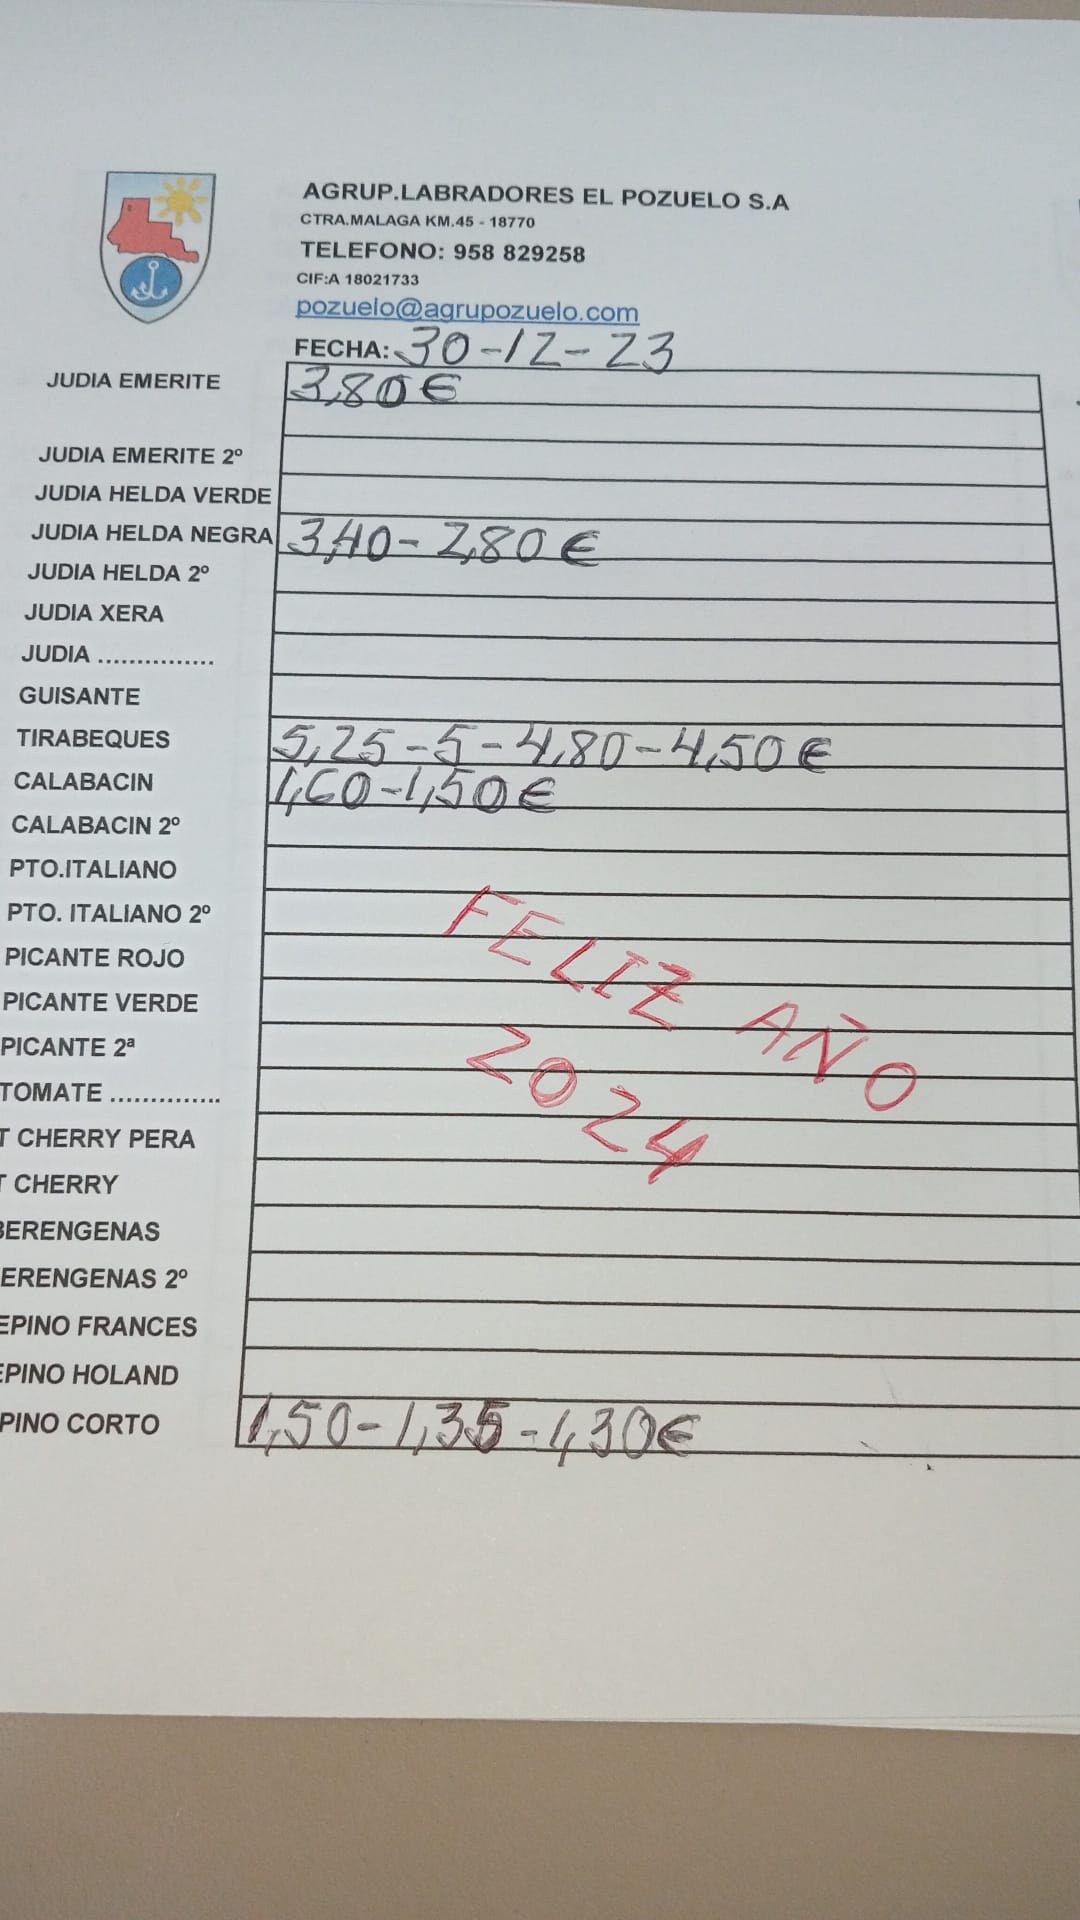 AGRUP.LABRADORES EL POZUELO S.A
CTRA.MALAGA KM.45 - 18770
TELEFONO: 958 829258
CIF:A 18021733
pozuelo@agrupozuelo.com
FECHA: 30-12-23
JUDIA EMERITE 3,80€
JUDIA EMERITE 2º
JUDIA HELDA VERDE
JUDIA HELDA NEGRA 3,40-2,80€
JUDIA HELDA 2º
JUDIA XERA
JUDIA ...............
GUISANTE
TIRABEQUES 5,25-5-4,80-4,50€
CALABACIN 1,60-1,50€
CALABACIN 2º
PTO.ITALIANO
PTO. ITALIANO 2º
PICANTE ROJO
PICANTE VERDE
PICANTE 2ª
TOMATE ..............
T CHERRY PERA
T CHERRY
BERENGENAS
ERENGENAS 2º
EPINO FRANCES
EPINO HOLAND
PINO CORTO 1,50-1,35-1,30€
FELIZ AÑO
2024